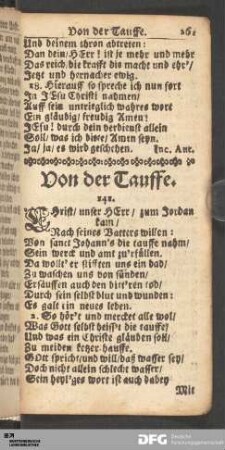 Von der Tauffe. 261
Und deinem thron abtreten:
Das dein/ HErr! ist je mehr und mehr
Das reich, die krafft die macht und ehr'/
Jetzt und hernacher ewig.
18. Hierauff so spreche ich nun fort
In JEsu Christi nahmen/
Auff sein untrieglich wahres wort
Ein gläubig/ freudig Amen!
JEsu! durch dein verdienst allein
Soll/ was ich bitte/ Amen seyn.
Ja/ ja/ es wird geschehen. Inc. Aut.
Von der Tauffe.
142.
CHrist/ unser HErr/ zum Jordan
kam/
Nach seines Vatters willen:
Von sanct Johann's die tauffe nahm/
Sein werck und amt zu'rfüllen.
Da wollt' er stifften uns ein bad/
Zu waschen uns von sünden/
Ersäuffen auch den bittren tod/
Durch sein selbst blut und wunden:
Es galt ein neues leben.
2. So hör't und mercket alle wol/
Was Gott selbst heiss't die tauffe/
Und was ein Christe gläuben soll/
Zu meiden ketzer hauffe.
GOtt spricht/ und will/ daß wasser sey/
Doch nicht allein schlecht wasser/
Sein heyl'ges wort ist auch dabey
Mit
DFG Deutsche
Forschungsgemeinschaft